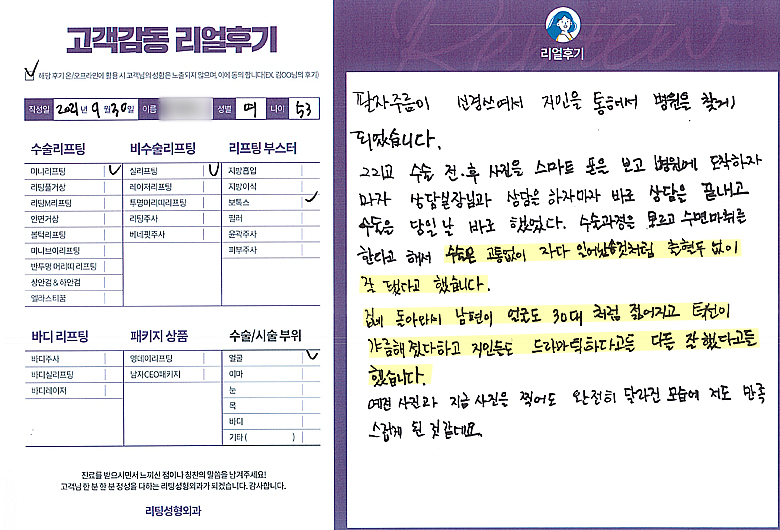 고객감동 리얼후기
해당 후기 온/오프라인에 활용 시 고객님의 성함은 노출되지 않으며, 이에 동의 합니다(EX. 김OO님의 후기)
작성일 2021년 9월 30일 이름 성별 여 나이 53
수술리프팅
미니리프팅
리팅풀거상
리팅M리프팅
안면거상
볼턱리프팅
미니브이리프팅
반투명 머리띠 리프팅
상안검 & 하안검
엘라스티꿈
비수술리프팅
실리프팅
레이저리프팅
투명머리띠리프팅
리팅주사
베네핏주사
리프팅 부스터
지방흡입
지방이식
보톡스
필러
윤곽주사
피부주사
바디 리프팅
바디주사
바디실리프팅
바디레이저
패키지 상품
영데이리프팅
남자CEO패키지
수술/시술 부위
얼굴
이마
눈
목
바디
기타 ( )
진료를 받으시면서 느끼신 점이나 칭찬의 말씀을 남겨주세요!
고객님 한 분 한 분 정성을 다하는 리팅성형외과가 되겠습니다. 감사합니다.
리팅성형외과
Review
리얼후기
팔자주름이 신경쓰여서 지인을 통해서 병원을 찾게
되었습니다.
그리고 수술 전.후 사진을 스마트 폰은 보고 병원에 도착하자
마자 상담실장님과 상담은 하자마자 바로 상담은 끝내고
수술은 당일날 바로 했었다. 수술과정은 모르고 수면마취를
한다고 해서 수술은 고통없이 자다 일어났을것처럼 출현두 없이
잘 됐다고 했습니다.
집에 돌아와서 남편이 얼굴도 30대 처럼 젊어지고 턱선이
갸름해졌다하고 지인들도 드라마틱하다고들 다들 잘했다고들
했습니다.
예전 사진과 지금 사진은 찍어도 완전히 달라진 모습에 저도 만족
스럽게 된 것 같네요.